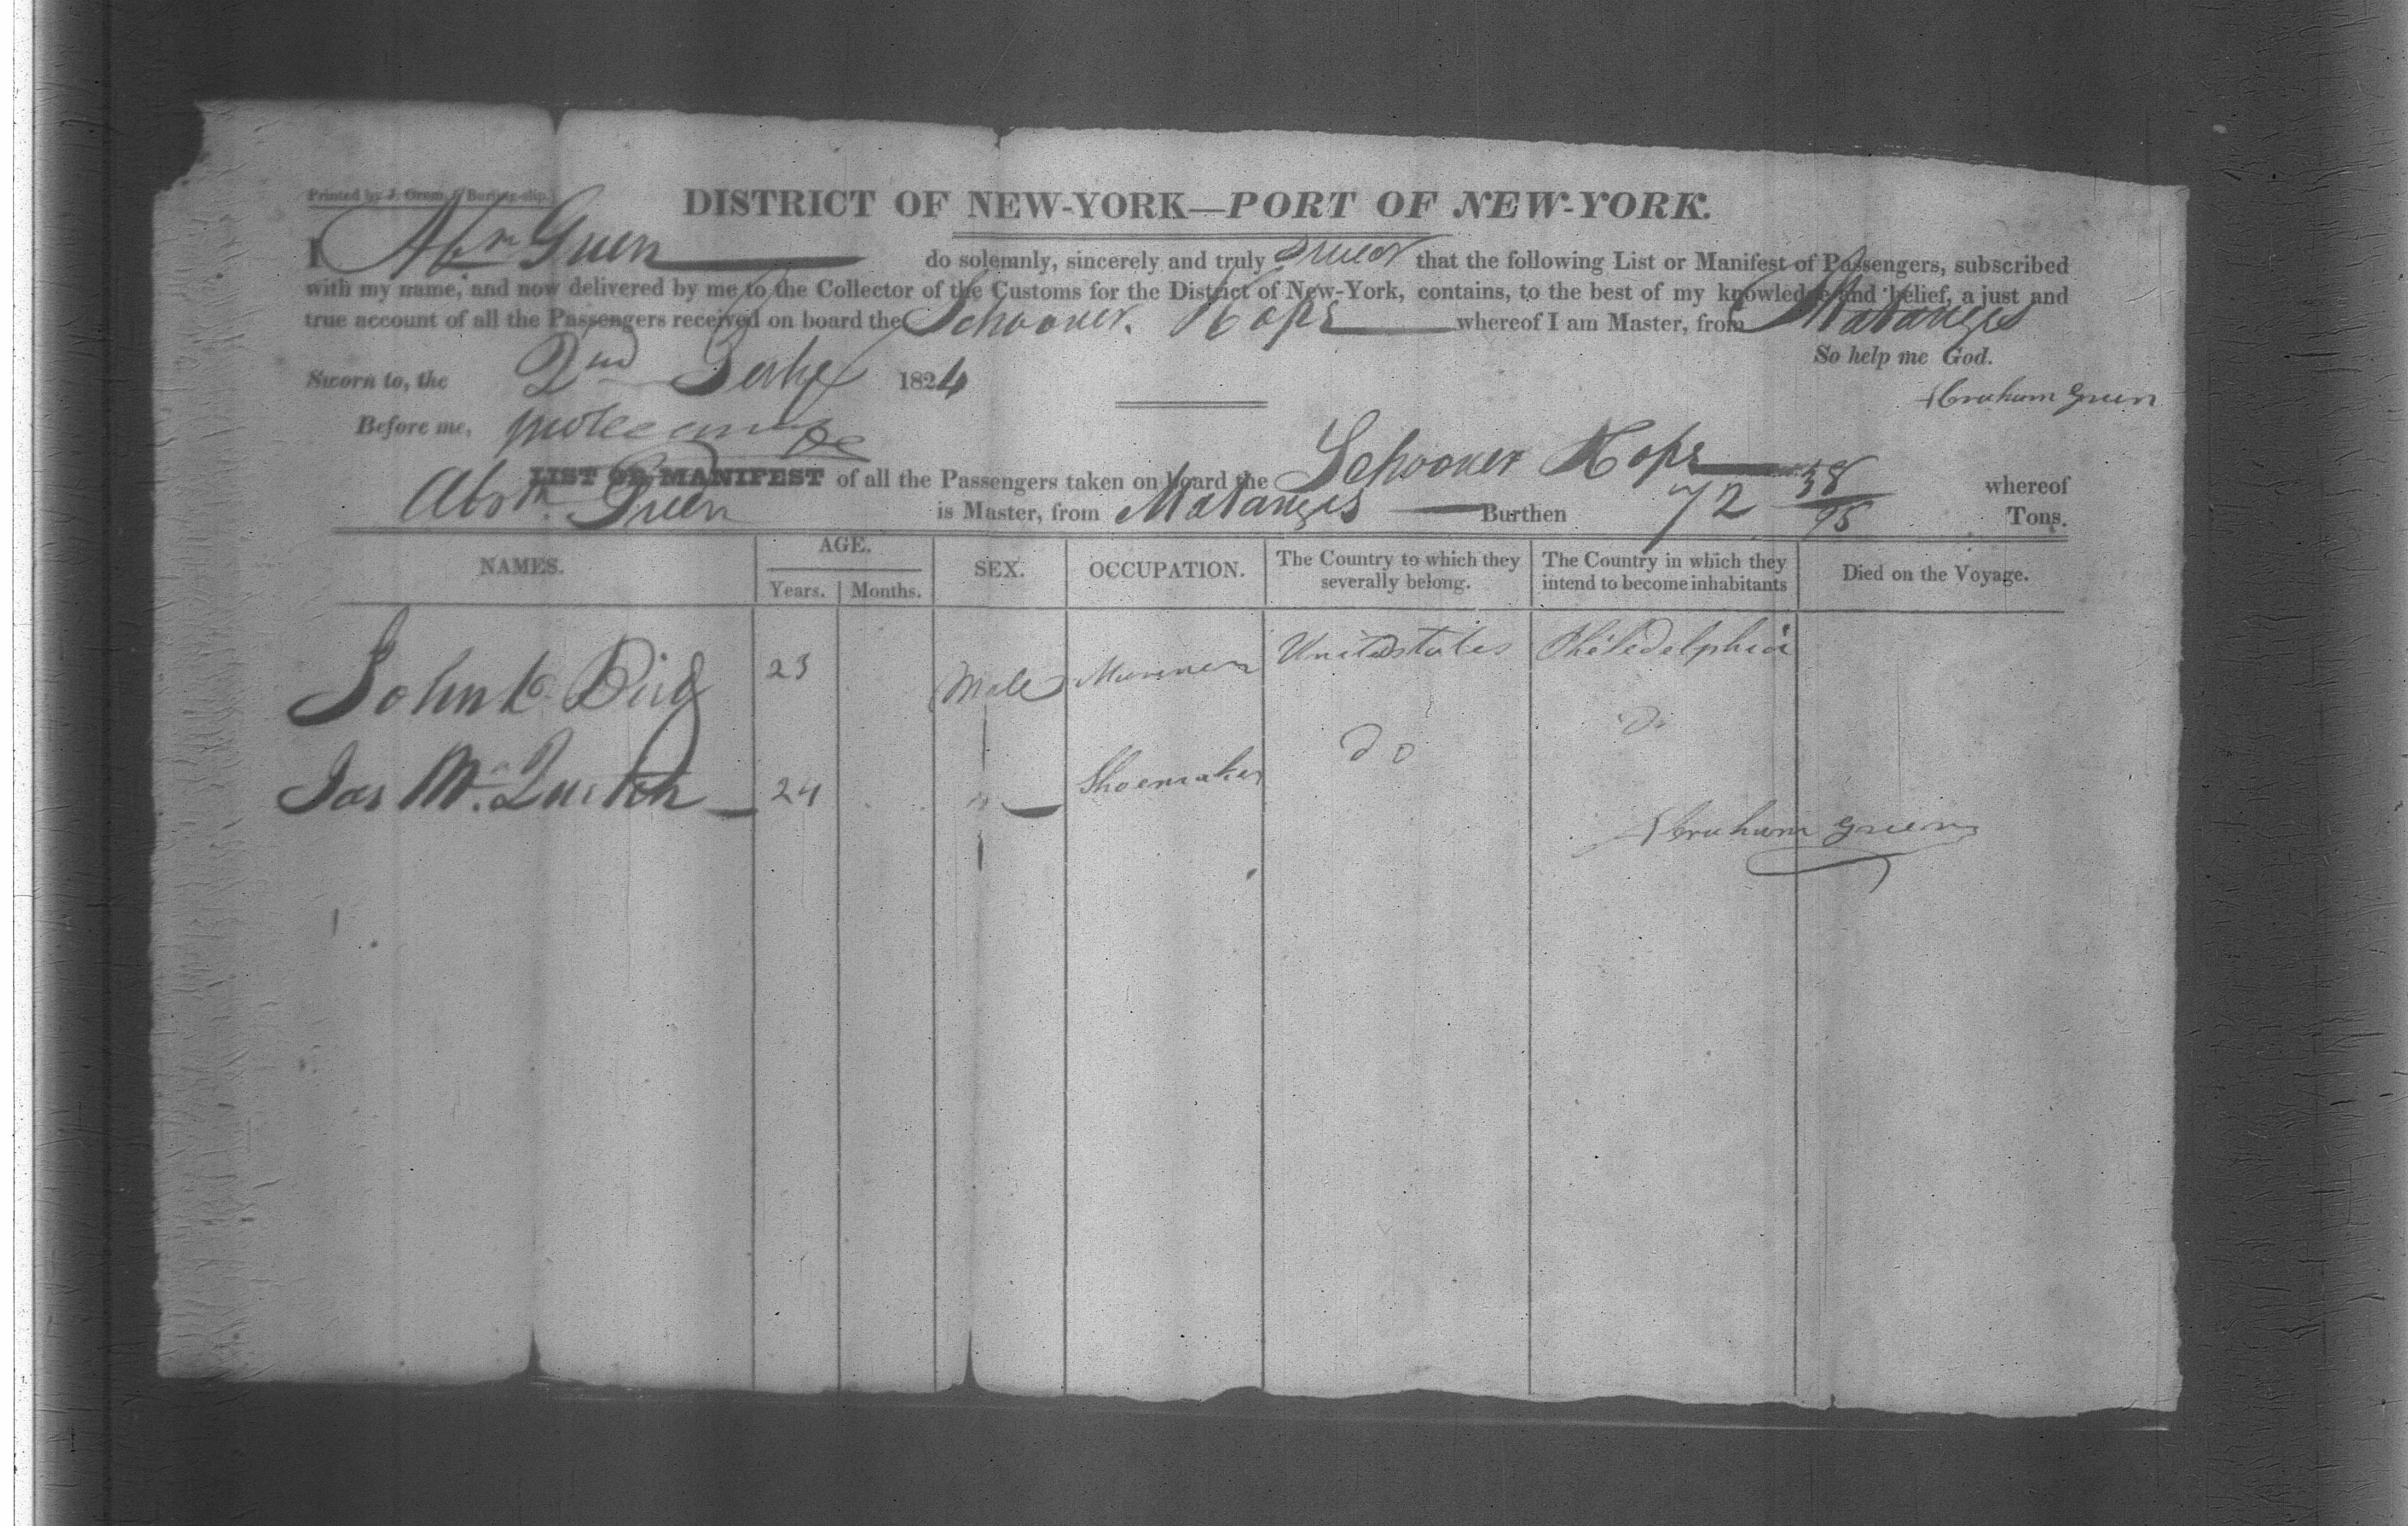 Printed by J. Oram, Burling-slip.
DISTRICT OF NEW-YORK—PORT OF NEW-YORK.
I Abm Green do solemnly, sincerely and truly swear that the following List or Manifest of Passengers, subscribed
with my name, and now delivered by me to the Collector of the Customs for the District of New-York, contains, to the best of my knowledge and belief, a just and
true account of all the Passengers received on board the Schooner Hope whereof I am Master, from Matanzis
So help me God.
Sworn to, the 2nd 1824
Abraham Green
Before me,
LIST OR MANIFEST of all the Passengers taken on board the Schooner Hope whereof
Abrm Green is Master, from Matanzis Burthen 72 38/95 Tons.
NAMES. AGE. Years. Months. SEX. OCCUPATION. The Country to which they severally belong. The Country in which they intend to become inhabitants Died on the Voyage.
John Bird 23 Male Mariner United states Philedelphia
Jas Mc 24 " Shoemaker do do
Abraham Green